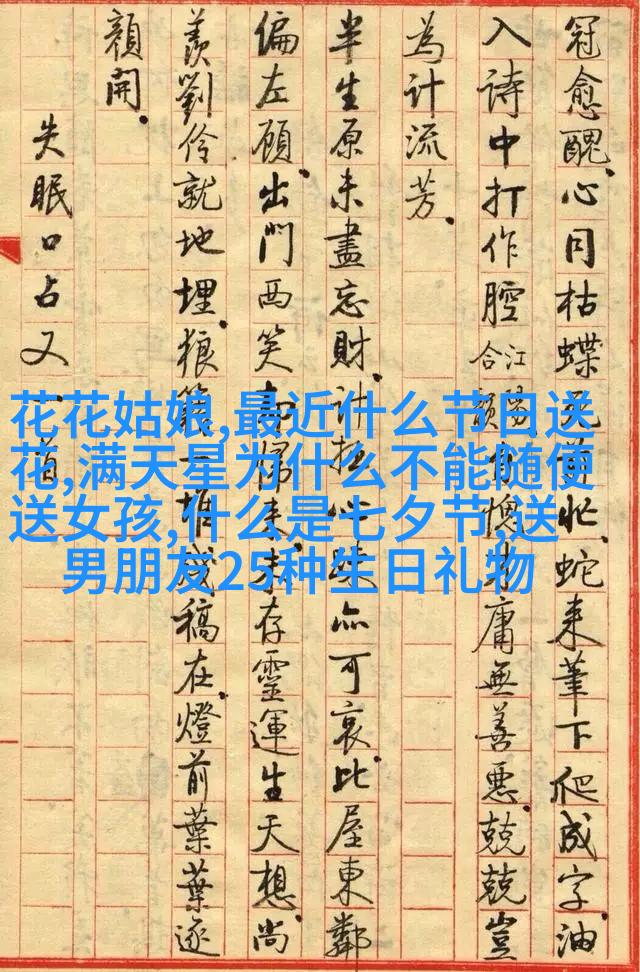 冠愈醜。心同枯蝶忙。蛇来筆下爬成字。油
入詩中打作腔 合江陽韻 愧庸無善惡。兢兢豈
為計流芳。
半生原未盡忘財。計亦可哀。比屋東鄰
偏左顧。出門西笑来。未存靈運生天想。尚
羨劉伶就地埋。狼一堆殘稿在。燈前葉葉逐
顏開。
失眠口占又一首
花花姑娘,最近什么节日送
花,满天星为什么不能随便
送女孩,什么是七夕节,送
男朋友25种生日礼物